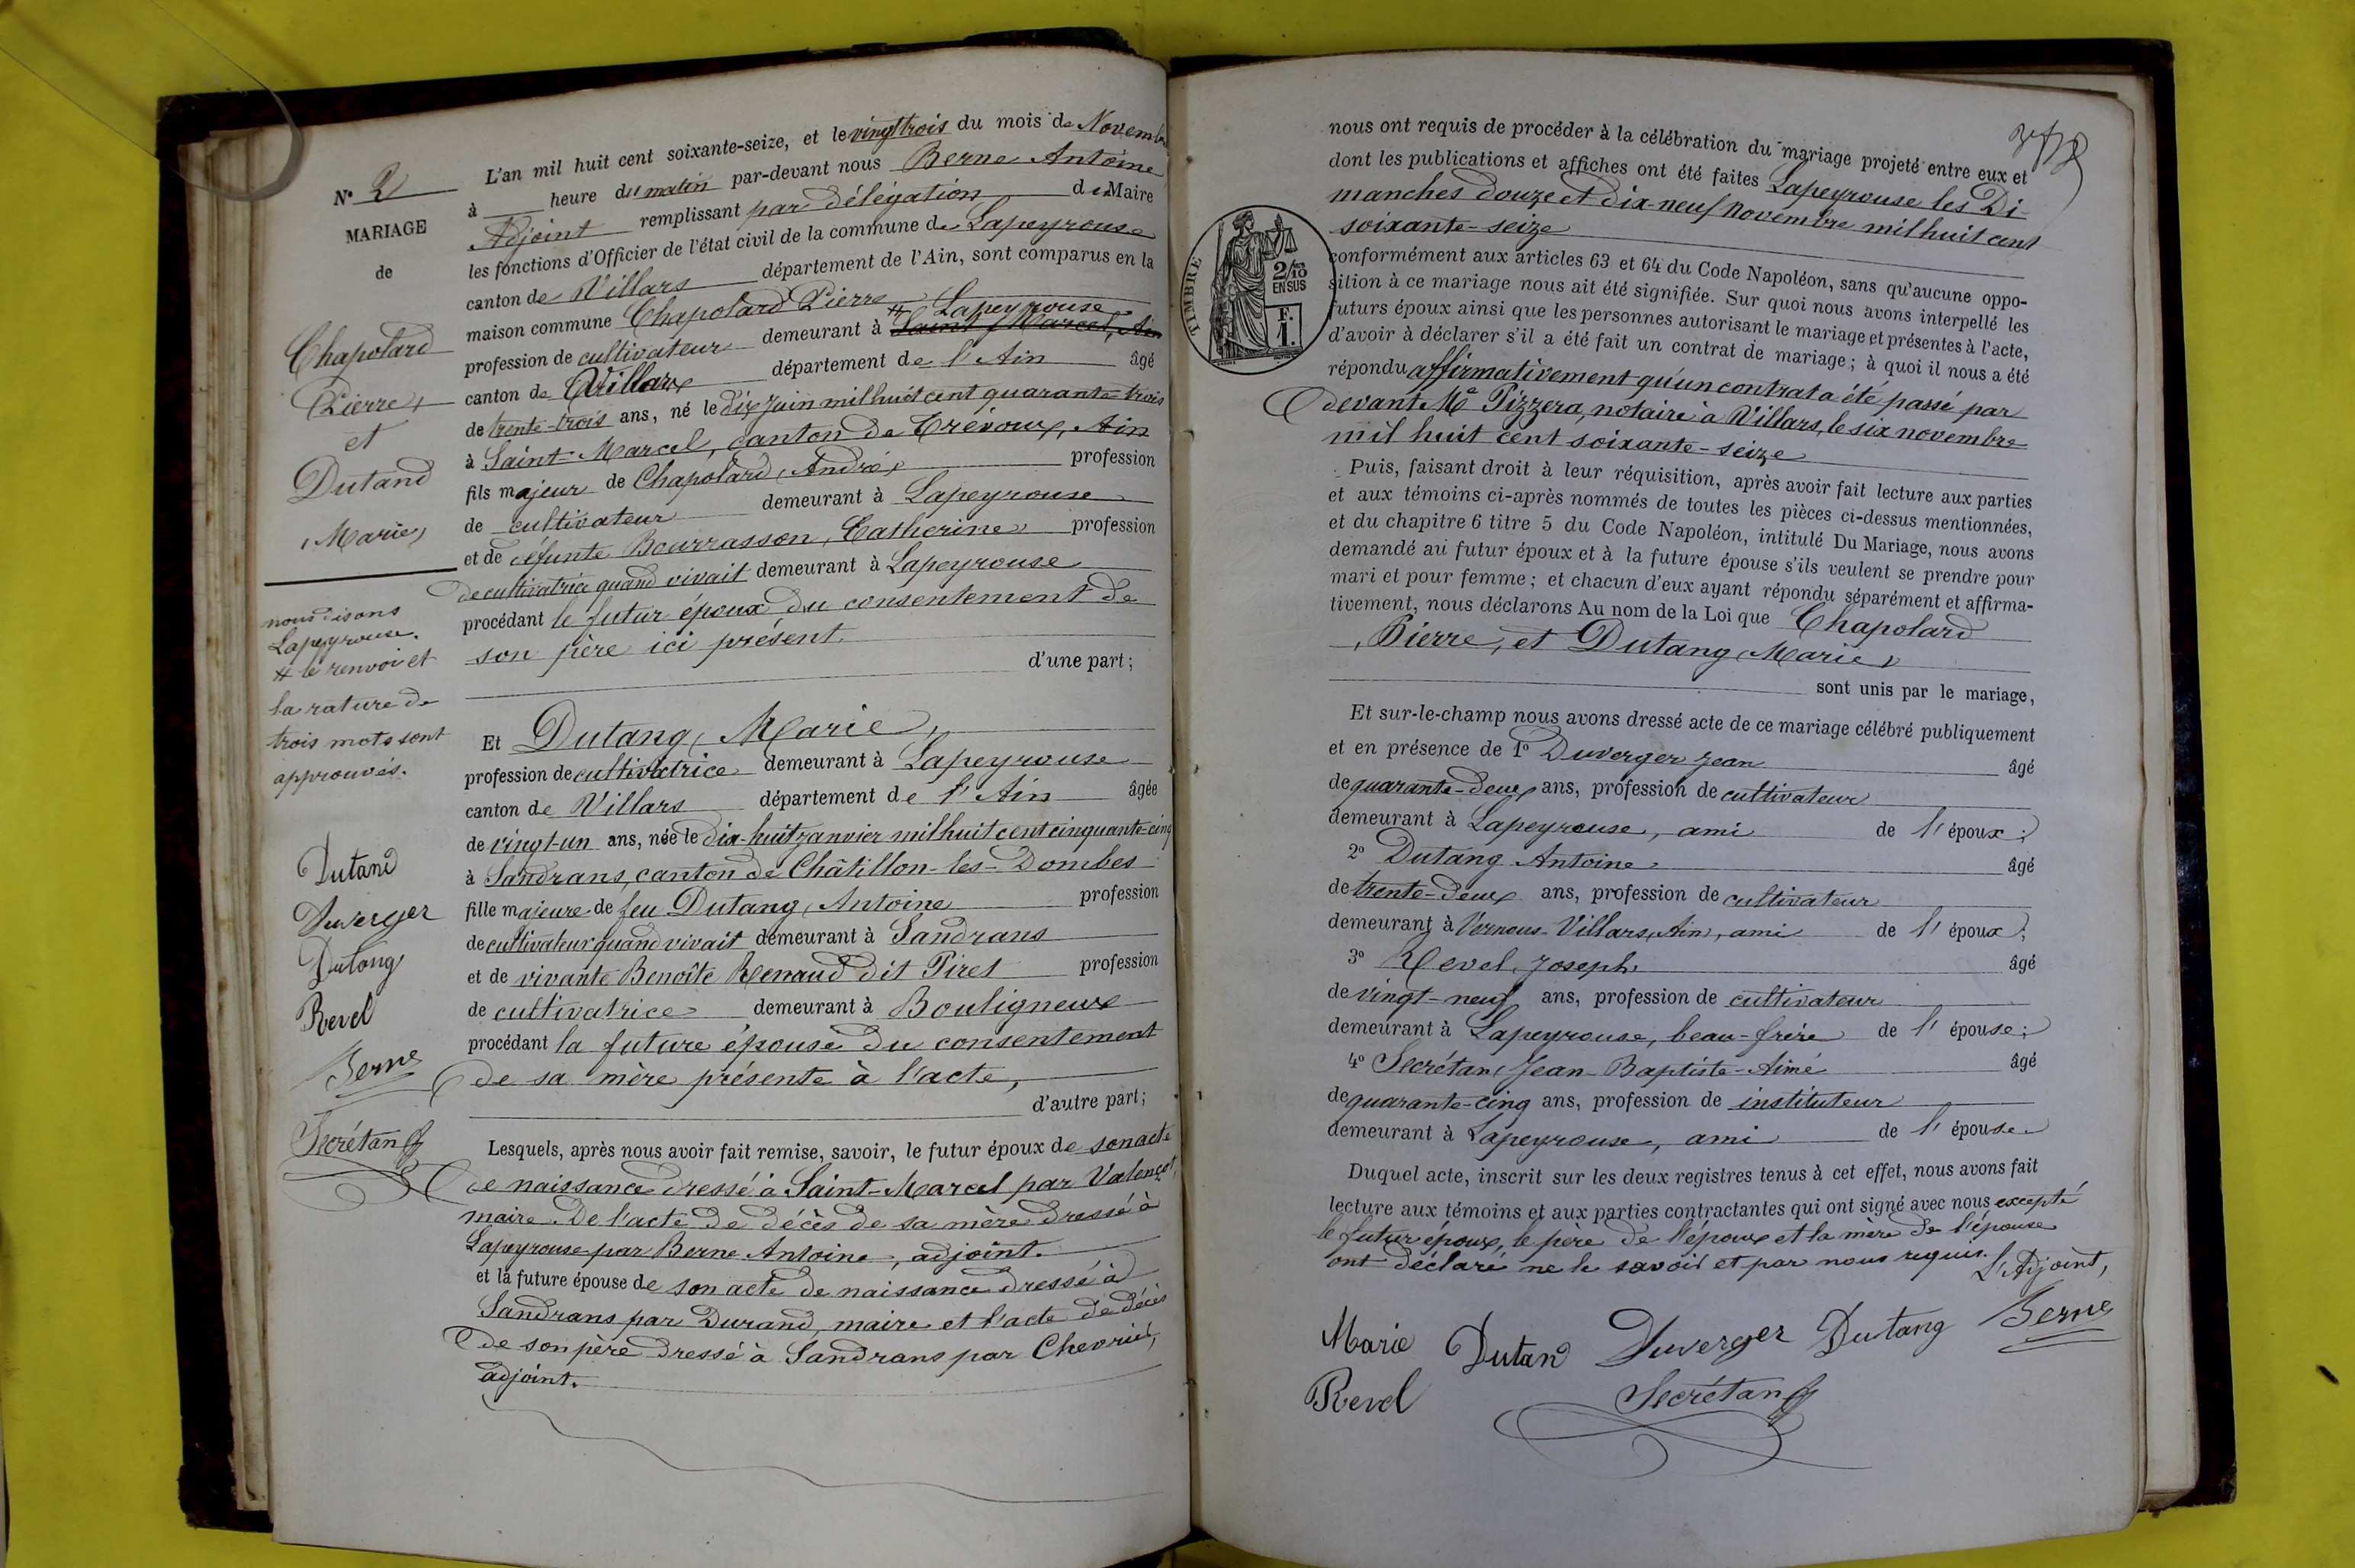 N° 2
MARIAGE
de
Chapolard
Pierre,
et
Dutand
Marie,
nous disons
Lapeyrouse.
# le renvoi et
la rature de
trois mots sont
approuvés.
Dutand
Duverger
Dutang
Revel
Berne
Secrétan
L'an mil huit cent soixante-seize, et le vingt trois du mois de Novembre
à heure du matin par-devant nous Berne Antoine
Adjoint remplissant par délégation du Maire
les fonctions d'Officier de l'état civil de la commune de Lapeyrouse
canton de Villars département de l'Ain, sont comparus en la
maison commune Chapolard Pierre
# Lapeyrouse
profession de cultivateur demeurant à Saint Marcel, Ain
canton de Villars département de l'Ain âgé
de trente-trois ans, né le dix Juin mil huit cent quarante-trois
à Saint-Marcel, canton de Trévoux, Ain
fils majeur de Chapolard, André, profession
de cultivateur demeurant à Lapeyrouse
et de défunte Bourrasson, Catherine profession
de cultivatrice quand vivait demeurant à Lapeyrouse
procédant le futur époux du consentement de
son père ici présent.
d'une part;
Et Dutang, Marie,
profession de cultivatrice demeurant à Lapeyrouse
canton de Villars département de l'Ain âgée
de vingt-un ans, née le dix-huit janvier mil huit cent cinquante-cinq
à Sandrans, canton de Châtillon-les-Dombes
fille majeure de feu Dutang, Antoine profession
de cultivateur quand vivait demeurant à Sandrans
et de vivante Benoîte Renaud dit Piret profession
de cultivatrice demeurant à Bouligneux
procédant la future épouse du consentement
de sa mère présente à l'acte,
d'autre part;
Lesquels, après nous avoir fait remise, savoir, le futur époux de son acte
de naissance dressé à Saint-Marcel par Valençot,
maire. De l'acte de décès de sa mère dressé à
Lapeyrouse par Berne Antoine, adjoint.
et la future épouse de son acte de naissance dressé à
Sandrans par Durand, maire et l'acte de décès
de son père dressé à Sandrans par Chevriel,
adjoint.
nous ont requis de procéder à la célébration du mariage projeté entre eux et
dont les publications et affiches ont été faites Lapeyrouse les Di-
manches douze et dix-neuf Novembre mil huit cent
soixante-seize
TIMBRE
2/10
EN SUS
F.
1.
conformément aux articles 63 et 64 du Code Napoléon, sans qu'aucune oppo-
sition à ce mariage nous ait été signifiée. Sur quoi nous avons interpellé les
futurs époux ainsi que les personnes autorisant le mariage et présentes à l'acte,
d'avoir à déclarer s'il a été fait un contrat de mariage; à quoi il nous a été
répondu affirmativement qu'un contrat a été passé par
devant Me Pizzera, notaire à Villars, le six novembre
mil huit cent soixante-seize
Puis, faisant droit à leur réquisition, après avoir fait lecture aux parties
et aux témoins ci-après nommés de toutes les pièces ci-dessus mentionnées,
et du chapitre 6 titre 5 du Code Napoléon, intitulé Du Mariage, nous avons
demandé au futur époux et à la future épouse s'ils veulent se prendre pour
mari et pour femme; et chacun d'eux ayant répondu séparément et affirma-
tivement, nous déclarons Au nom de la Loi que Chapolard
, Pierre, et Dutang, Marie,
sont unis par le mariage,
Et sur-le-champ nous avons dressé acte de ce mariage célébré publiquement
et en présence de 1° Duverger Jean âgé
de quarante-deux ans, profession de cultivateur
demeurant à Lapeyrouse, ami de l'époux;
2° Dutang Antoine, âgé
de trente-deux ans, profession de cultivateur
demeurant à Vernous-Villars, Ain, ami de l'époux;
3° Revel, Joseph, âgé
de vingt-neuf ans, profession de cultivateur
demeurant à Lapeyrouse, beau-frère de l'épouse;
4° Secrétan, Jean-Baptiste-Aimé âgé
de quarante-cinq ans, profession de instituteur
demeurant à Lapeyrouse, ami de l'épouse.
Duquel acte, inscrit sur les deux registres tenus à cet effet, nous avons fait
lecture aux témoins et aux parties contractantes qui ont signé avec nous excepté
le futur époux, le père de l'époux et la mère de l'épouse
ont déclaré ne le savoir et par nous requis.
L'Adjoint,
Marie Dutand Duverger Dutang Berne
Revel Secrétan